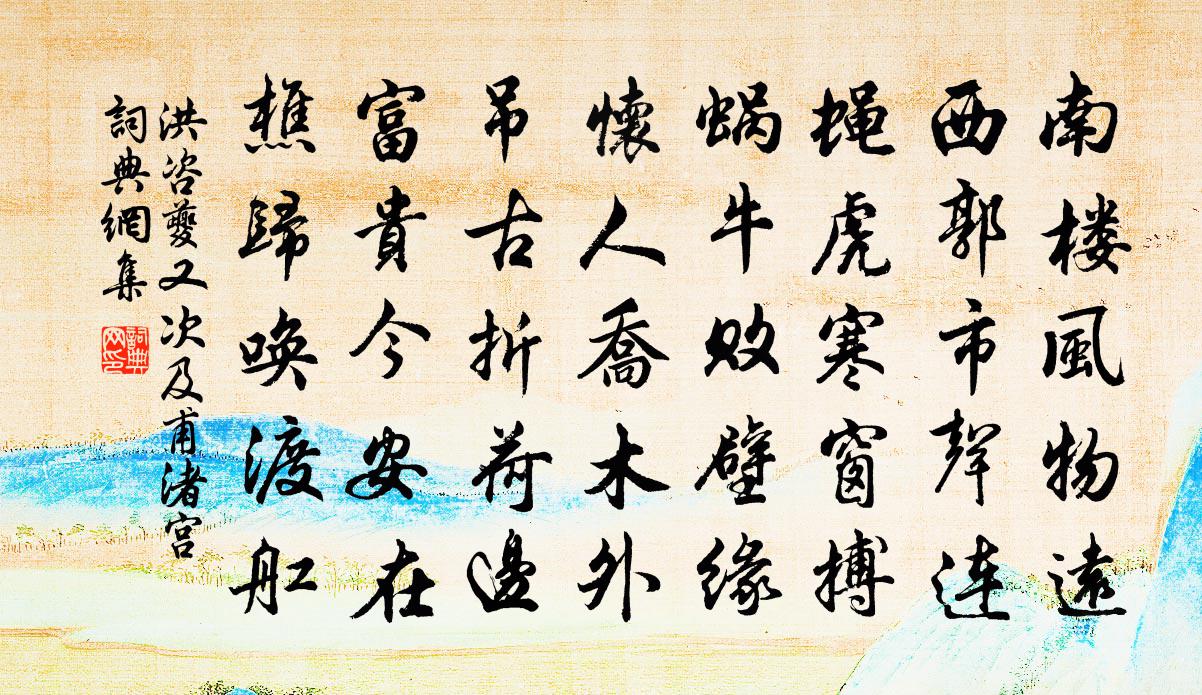 南楼風物遠
西郭市聲連
蝇虎寒窗搏
蜗牛败壁缘
懷人喬木外
吊古折荷邊
富貴今安在
樵歸唤渡舡
洪咨夔又次及甫渚宫
詞典網集
詞典網印